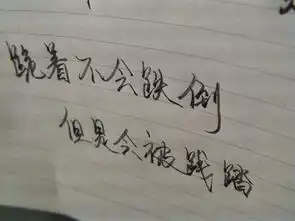 跪着不会跌倒
但是会被践踏